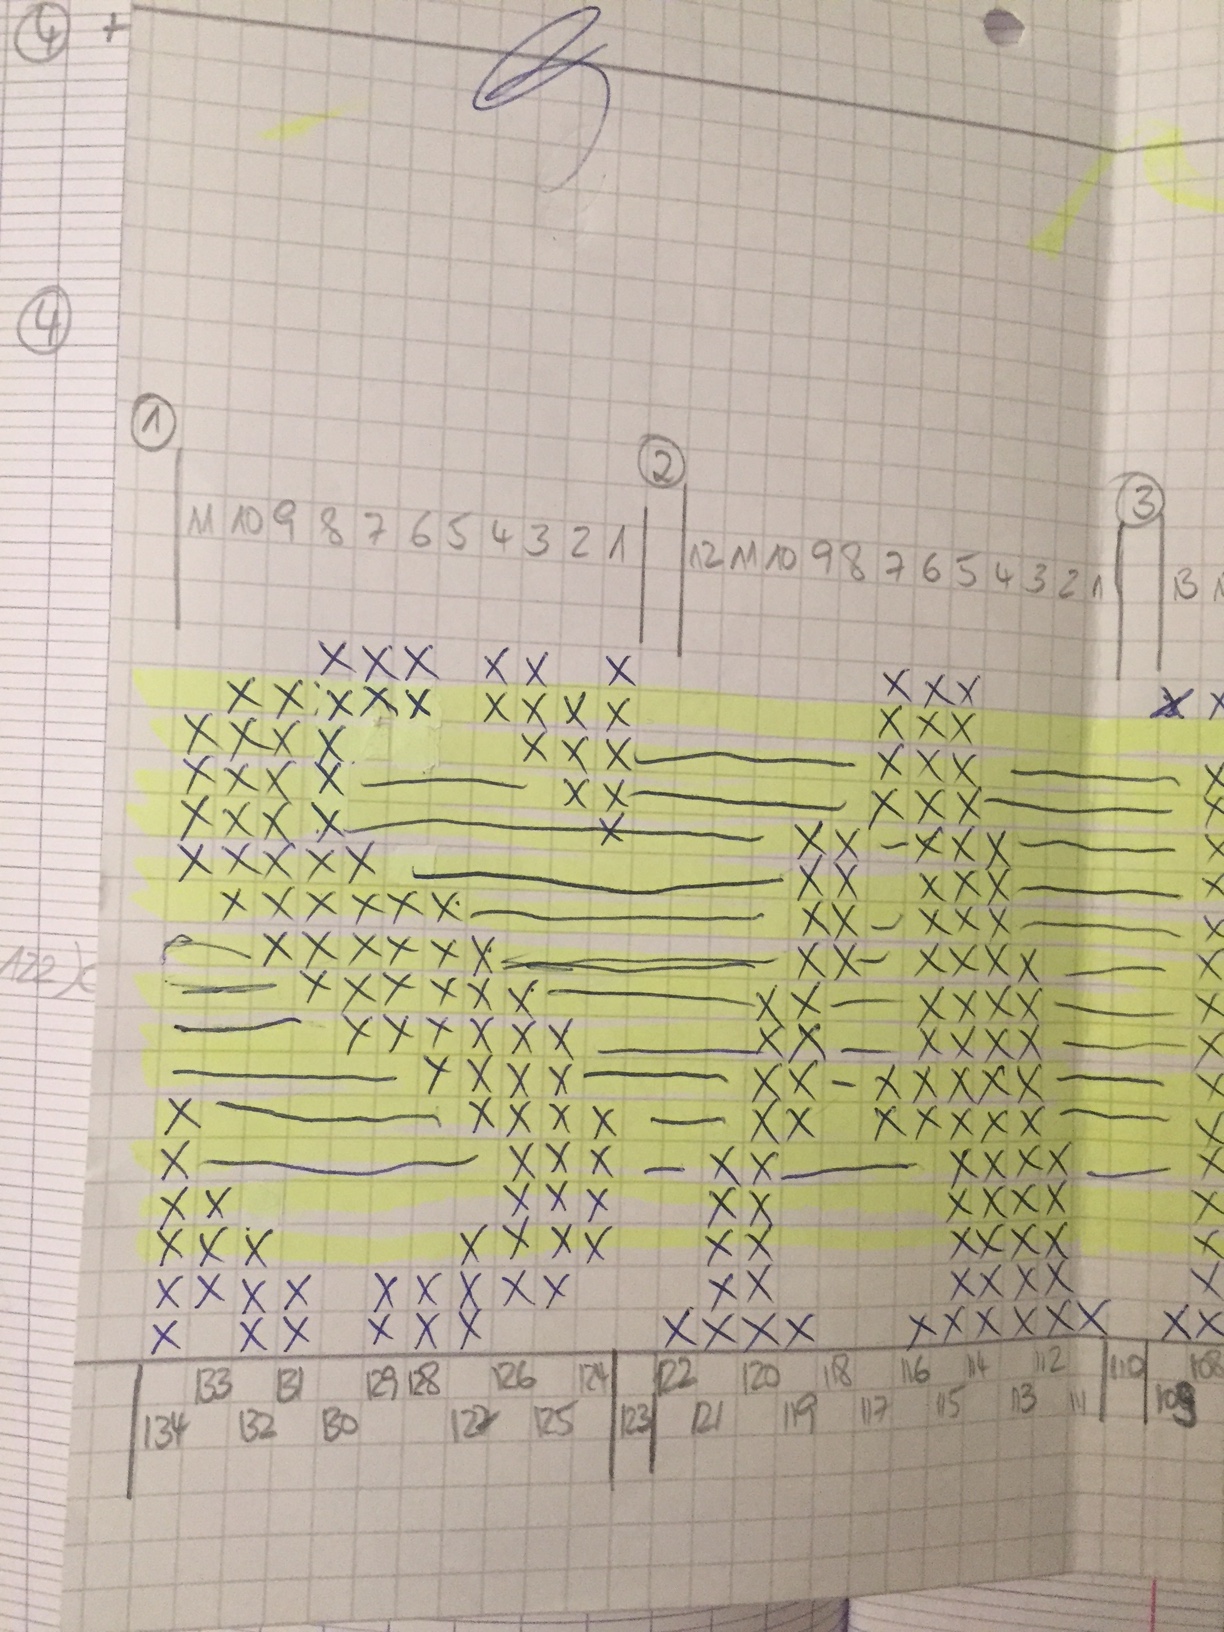 ④ +
④
①
②
③
11 10 9 8 7 6 5 4 3 2 1
12 11 10 9 8 7 6 5 4 3 2 1
13
X X X X X X
X X X X X X X X X X X X
X X X X X X X X X X
X X X X X X X X X X
X X X X X X X X X
X X X X X X X X X X X
X X X X X X X X X X X X
X X X X X X X X X X X X X
X X X X X X X X X X X X X
X X X X X X X X X X X X X
X X X X X X X X X X X X
X X X X X X X X X X X X X
X X X X X X X X X X X
X X X X X X X X X X X X
X X X X X X X X X X X X X X
X X X X X X X X X X X X X X X X
X X X X X X X X X X X X X X X X X X
122
133 131 129 128 126 124 122 120 118 116 114 112 110 108
134 132 130 127 125 123 121 119 117 115 113 111 109